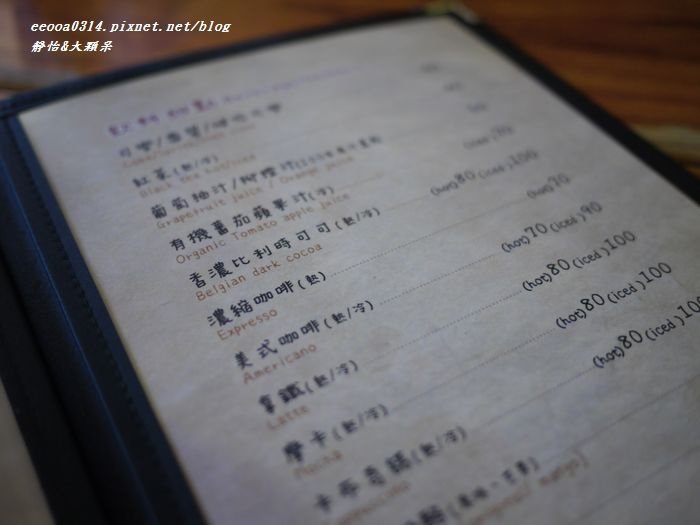 eeooa0314.pixnet.net/blog
靜怡&大顆呆
飲料 甜點
可樂/雪碧/
紅茶(熱/冷)
Black tea hot/iced
葡萄柚汁/柳橙汁
Grapefruit juice / Orange juice
有機蕃茄蘋果汁(冷) (iced)70
Organic Tomato apple juice
香濃比利時可可(熱/冷) (hot)80 (iced)100
Belgian dark cocoa
濃縮咖啡(熱) (hot)70
Expresso
美式咖啡(熱/冷) (hot)70 (iced)90
Americano
拿鐵(熱/冷) (hot)80 (iced)100
Latte
摩卡(熱/冷) (hot)80 (iced)100
Mocha
卡布奇諾(熱/冷) (hot)80 (iced)100